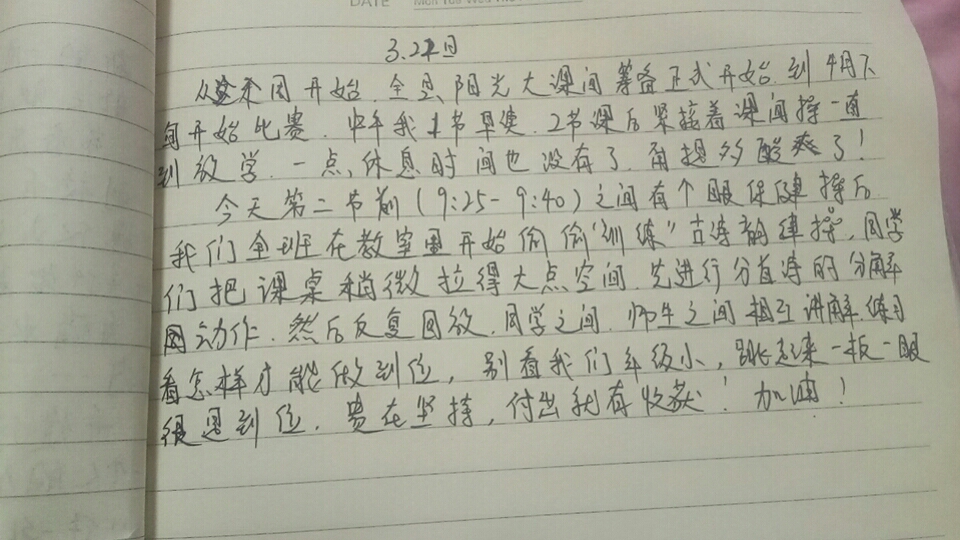 DATE
3.21日
从这周开始.全县阳光大课间筹备正式开始.到4月下
旬开始比赛.中午我1节早读.2节课后紧接着课间操一直
到放学.一点休息时间也没有了.有提多酸爽了!
今天第二节前(9:25-9:40)之间有个眼保健操后.
我们全班在教室里开始偷偷"训练"古诗韵律操.同学
们把课桌稍微拉得大点空间.先进行分首诗的分解
动作.然后反复回放.同学之间.师生之间相互讲解.练习
看怎样才能做到位,别看我们年级小,跳起来一板一眼
很到位.贵在坚持,付出就有收获!加油!